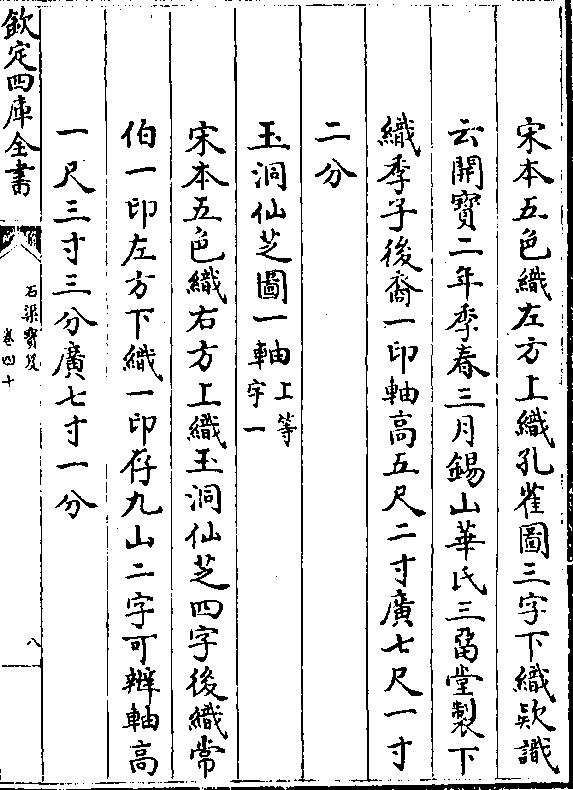 宋本五色織左方上織孔雀圖三字下織款識
云開寶二年季春三月錫山華氏三畱堂製下
織季子後裔一印軸高五尺二寸廣七尺一寸
二分
玉洞仙芝圖一軸上等
字一
宋本五色織右方上織玉洞仙芝四字後織常
伯一印左方下織一印存九山二字可辨軸高
一尺三寸三分廣七寸一分
欽定四庫全書
石渠寳笈
卷四十
八